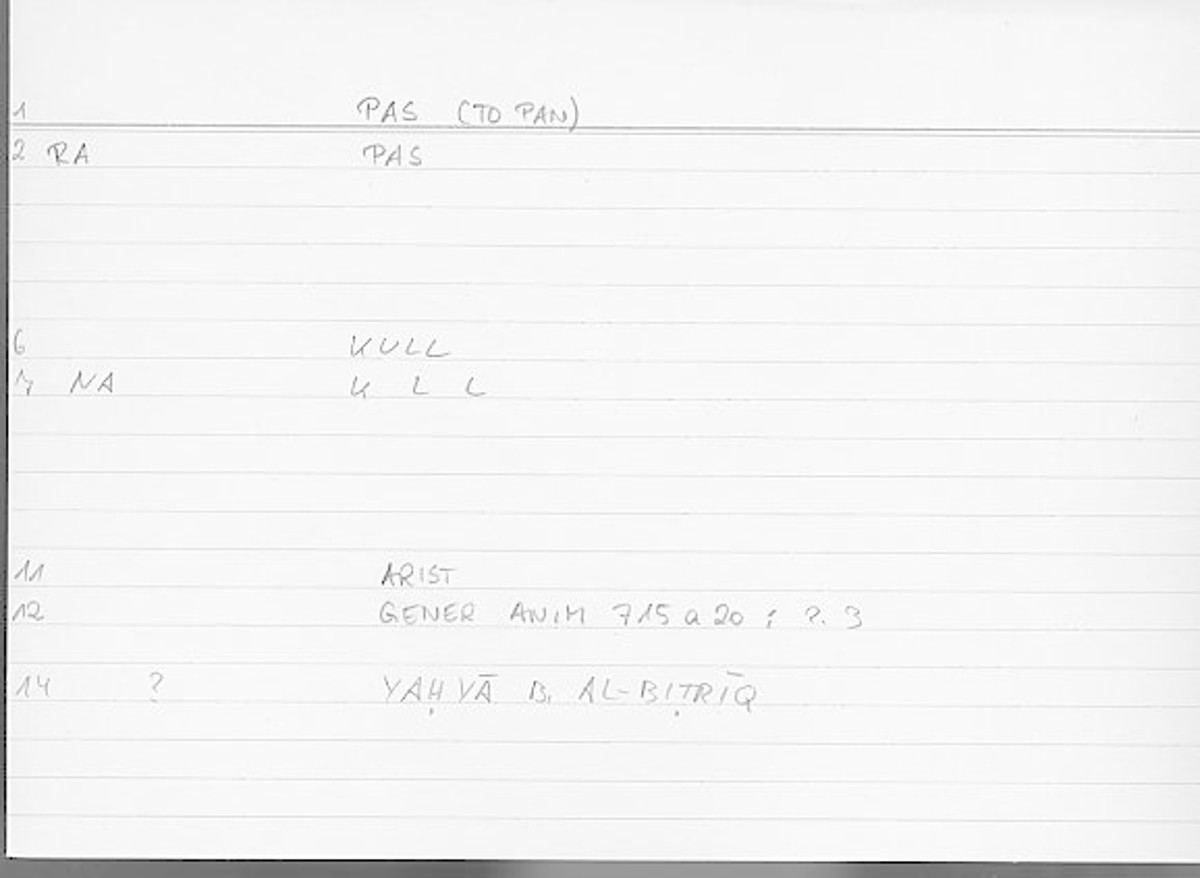 1 PAS (TO PAN)
2 RA PAS
6 KULL
7 NA K L L
11 ARIST
12 GENER ANIM 715 a 20 ; ?. 3
14 ? YAḤYĀ B. AL-BIṬRĪQ